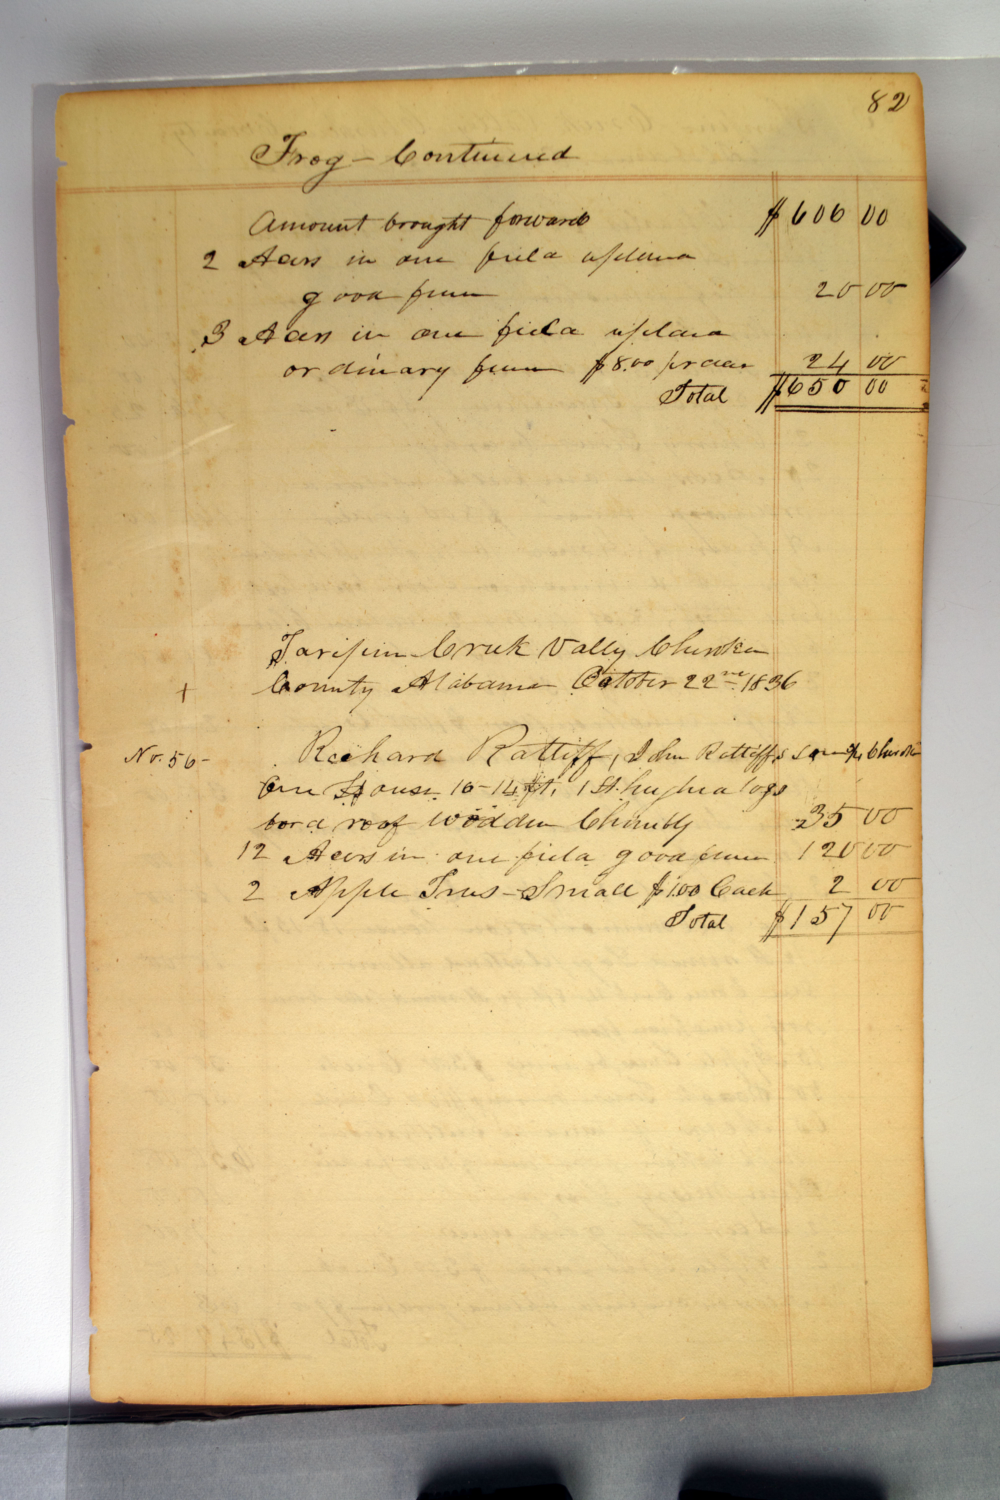 82
Frog - Continued
Amount brought forward $606 00
2 Acers in one field upland
good fence 20 00
3 Acers in one field upland
ordinary fence $8.00 pr acer 24 00
Total $650 00
Taripin Creek Vally Cherokee
+ County Alabama October 22nd 1836
No. 56- Richard Ratliff, John Ratliffs Cherokee
One House 16-14 ft, 1 St. high logs
bord roof wodden Chimbly 35 00
12 Acers in one field good fence 120 00
2 Apple Trees - Small $1.00 Each 2 00
Total $157 00